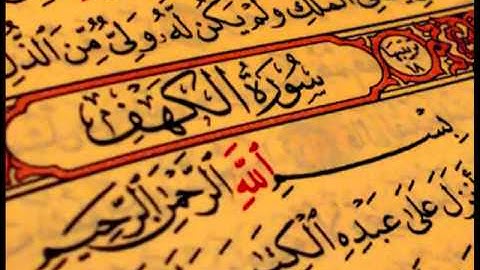 ٱلْمُلْكِ وَلَمْ يَكُن لَّهُۥ وَلِىٌّ مِّنَ ٱلذُّلِّ
سُورَةُ الكَهْفِ
بِسْمِ ٱللَّهِ ٱلرَّحْمَٰنِ ٱلرَّحِيمِ
أَنزَلَ عَلَىٰ عَبْدِهِ ٱلْكِتَٰبَ